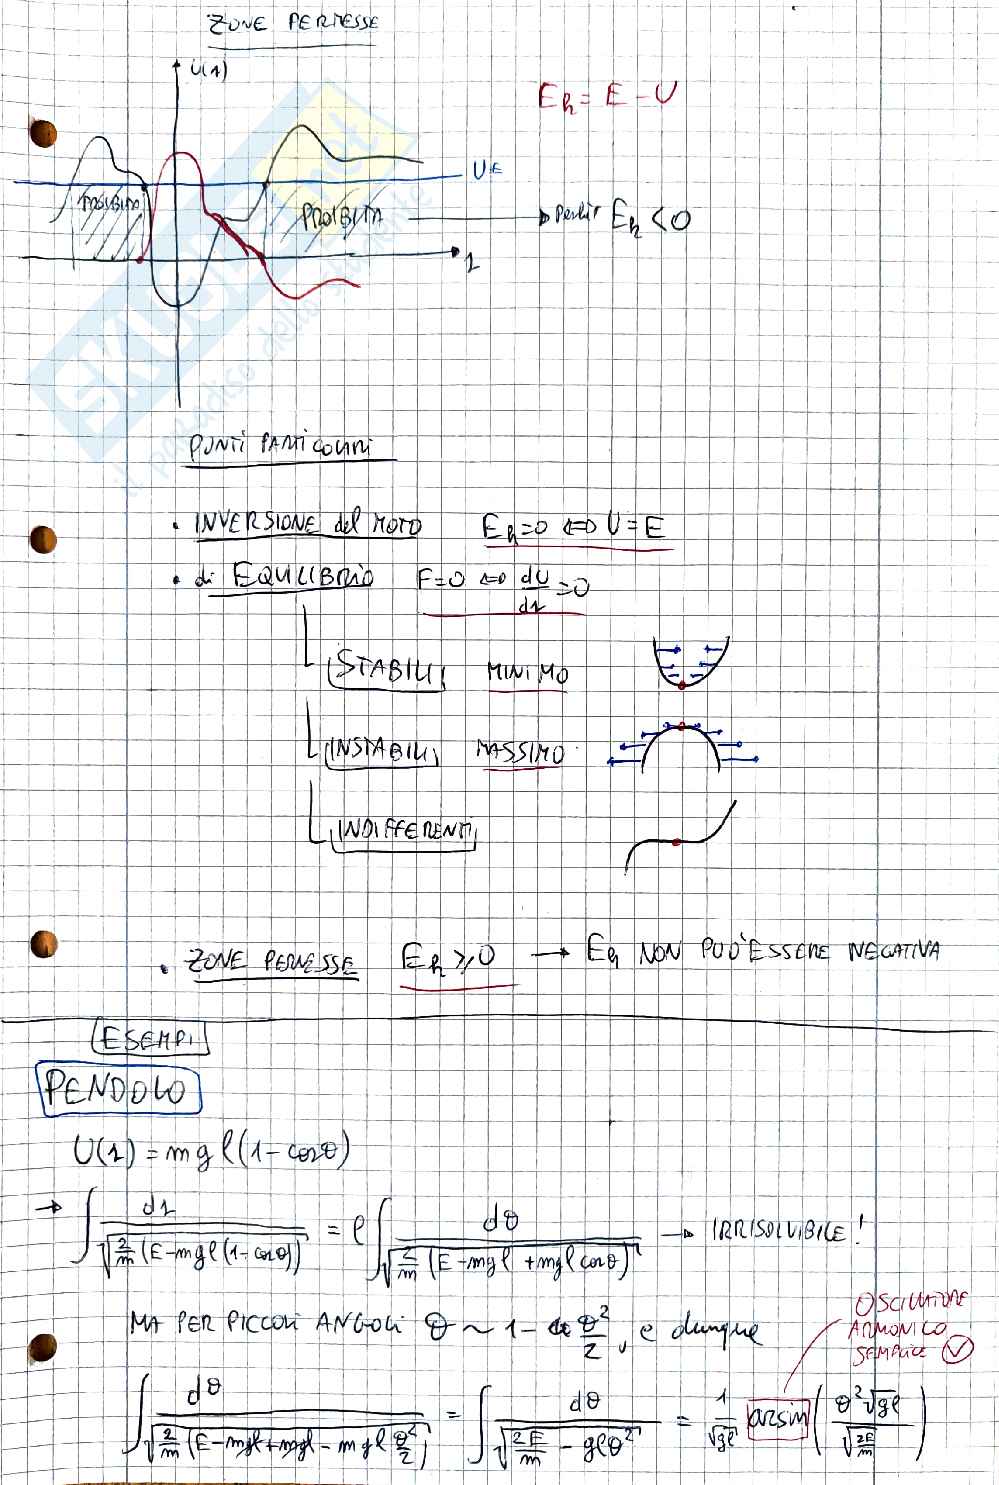 ZONE PERMESSE
U(1)
E_k = E - U
U=E
PROIBITA
PROIBITA → perché E_k < 0
1
SKUOLA.net
il paradiso dello studente
PUNTI PARTICOLARI
• INVERSIONE del MOTO E_k=0 ⇔ U=E
• di EQUILIBRIO F=0 ⇔ dU/d1 =0
STABILI MINIMO
INSTABILI MASSIMO
INDIFFERENTI
• ZONE PERMESSE E_k ≥ 0 → E_k NON PUO' ESSERE NEGATIVA
ESEMPI
PENDOLO
U(1) = mgl(1-cosθ)
→ ∫ d1/√(2/m (E-mgl(1-cosθ))) = l ∫ dθ/√(2/m (E-mgl+mgl cosθ)) → IRRISOLVIBILE!
MA PER PICCOLI ANGOLI θ ~ 1 - θ²/2, e dunque
OSCILLATORE
ARMONICO
SEMPLICE
∫ dθ/√(2/m (E-mgl+mgl-mgl θ²/2)) = ∫ dθ/√(2E/m - glθ²) = 1/√gl arsin(θ²√gl/√(2E/m))